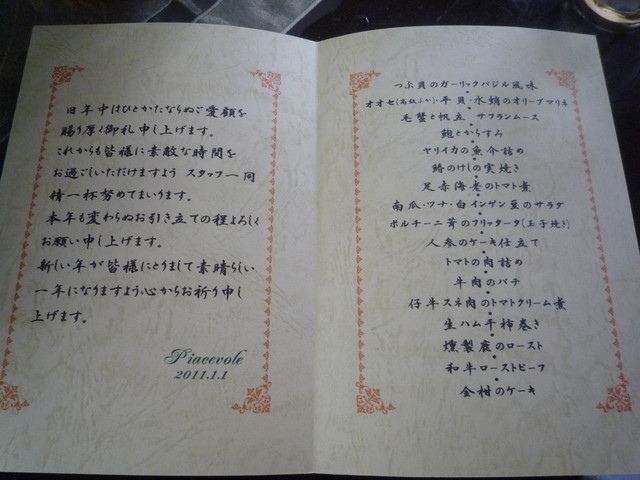 旧年中はひとかたならぬご愛顧を
賜り厚く御礼申し上げます。
これからも皆様に素敵な時間を
お過ごしいただけますよう スタッフ一同
精一杯努めてまいります。
本年も変わらぬお引き立ての程よろしく
お願い申し上げます。
新しい年が皆様にとりまして素晴らしい
一年になりますよう心からお祈り申し
上げます。
Piacevole
2011.1.1
つぶ貝のガーリックバジル風味
オオセ(高級ふか)・平貝・水蛸のオリーブマリネ
毛蟹と帆立 サフランムース
鮑とからすみ
ヤリイカの魚介詰め
鰆のけしの実焼き
足赤海老のトマト煮
南瓜・ツナ・白インゲン豆のサラダ
ポルチーニ茸のフリッタータ(玉子焼き)
人参のケーキ仕立て
トマトの肉詰め
牛肉のパテ
仔牛スネ肉のトマトクリーム煮
生ハム干柿巻き
燻製鹿のロースト
和牛ローストビーフ
金柑のケーキ